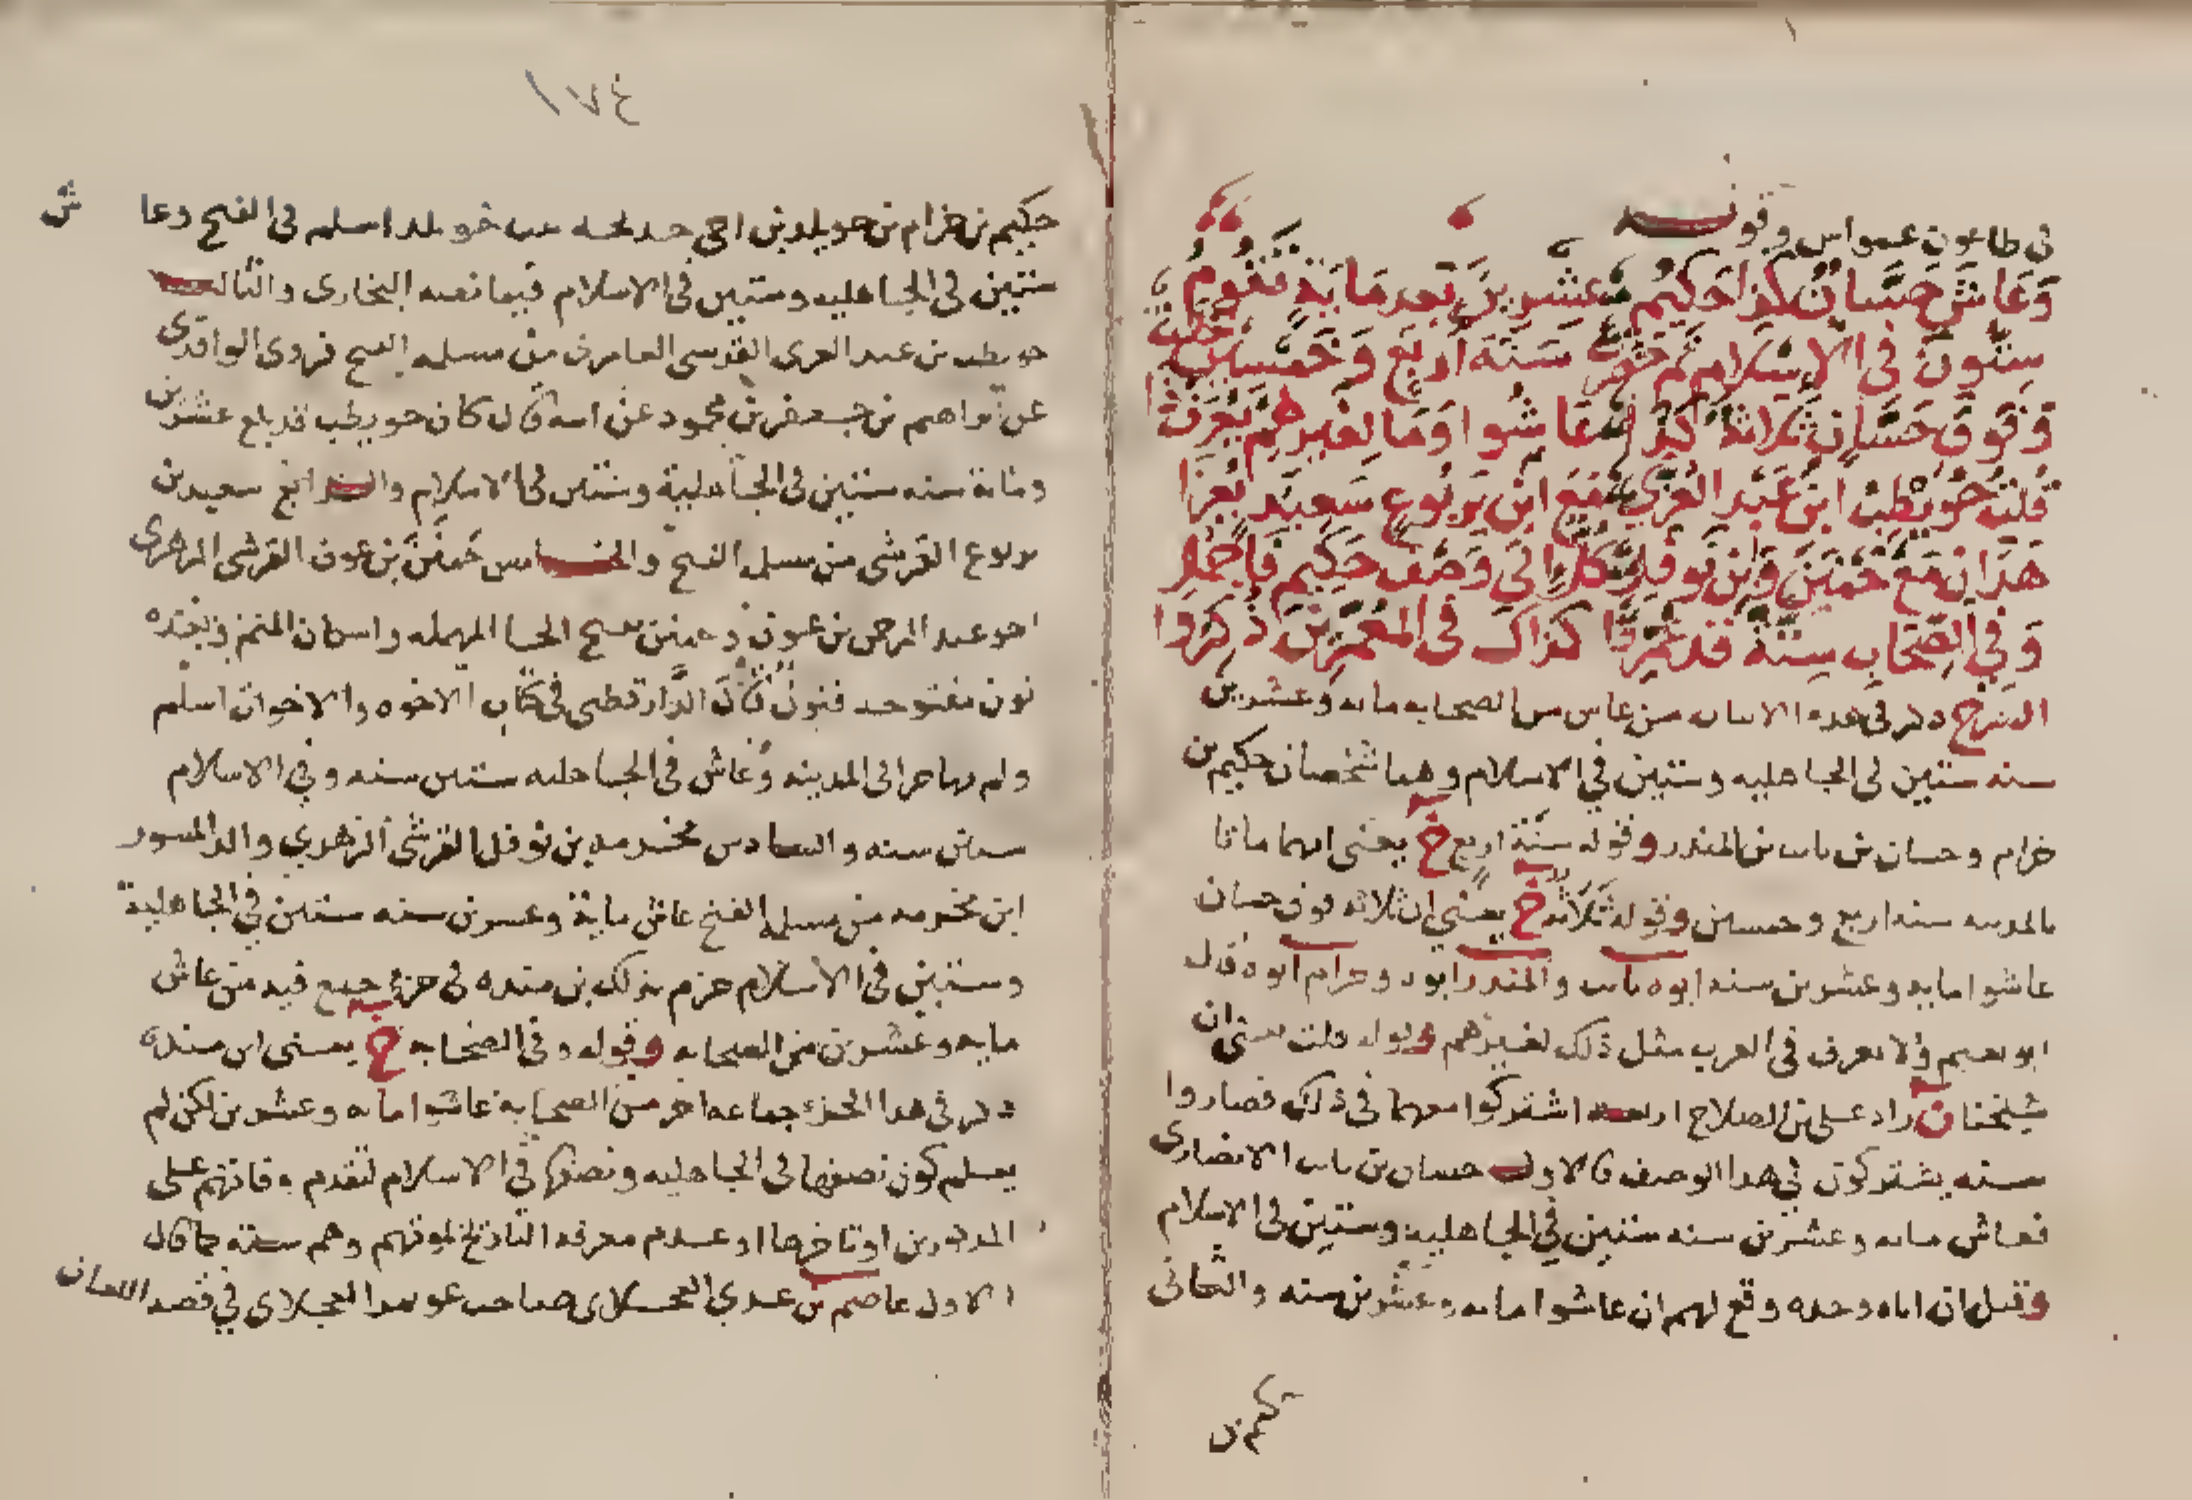 في طاعون عمواس وقوله
وَعَاشَ حَسَّانُ كذا حَكيمُ عشرين بَعد مَايَةٍ تَقُومُ
سِتُّونَ في الإسْلام ثم حضرت سَنَةَ أربَع وَخَمْسينَ خلت
وَفَوقَ حَسَّانٍ ثَلاثةٌ كذا عَاشُوا وَمَا لغَيرهم يُعرَف ذا
قُلتُ حُوَيْطِبُ ابنُ عَبْد العُزَّى مَعَ ابن يَربُوعٍ سَعِيدٍ يُعزَا
هَذَانِ مَعْ حَمْنَنَ وَابن نَوفل كلٌّ إلى وَصْف حَكِيمٍ فاجمل
وَفي الصِّحَاب سِتَّة قد عمِّروا كذاك في المعَمَّرينَ ذُكِرُوا
الشرح ذكر في هذه الابيات من عاش من الصحابه مايه وعشرين
سنه ستين في الجاهليه وستين في الاسلام وهما شخصان حكيم بن
حزام وحسان بن ثابت بن المنذر وقوله سَنَة اربع خ يعني انهما ماتا
بالمدينه سنه اربع وخمسين وقوله ثَلاثَة خ يعني ان ثلاثه فوق حسان
عاشوا مايه وعشرين سنه ابوه ثابت والمنذر ابوه وحرام ابوه قال
ابو نعيم ولا يعرف في العرب مثل ذلك لغيرهم وقوله قلت يعني ان
شيخنا ن زاد على بن الصلاح اربعه اشتركوا معهما في ذلك فصاروا
سته يشتركون في هذا الوصف فالاول حسان بن ثابت الانصاري
فعاش مايه وعشرين سنه ستين في الجاهليه وستين في الاسلام
وقبل ان اباه وجده وقع لهم ان عاشوا مايه وعشرين سنه والثاني
حكيم بن
١٧٤
حكيم بن حزام بن خويلد بن اخي خديجه بنت خويلد اسلم في الفتح وعاش
ستين في الجاهليه وستين في الاسلام فيما نقله البخاري والثالث
حويطب بن عبد العزى القرشي العامري من مسلمه الفتح فروى الواقدي
عن ابراهيم بن جعفر بن محمود عن ابيه قال كان حويطب قد بلغ عشرين
ومائة سنه ستين في الجاهلية وستين في الاسلام والرابع سعيد بن
يربوع القرشي من مسلمة الفتح والخامس حَمْنَنُ بن عوف القرشي الزهري
اخو عبد الرحمن بن عوف وحمنن بفتح الحا المهمله واسكان الميم وبعده
نون مفتوحه فنون قَالَ الدَّارقطني في كتاب الاخوه والاخوات اسلم
ولم يهاجر الى المدينه وعَاش في الجاهليه ستين سنه وفي الاسلام
ستين سنه والسادس مخرمه بن نوفل القرشي الزهري والد المسور
ابن مخرمه من مسلمة الفتح عاش ماية وعشرين سنه ستين في الجاهلية
وستين في الاسلام جزم بذلك بن منده في جزء جمع فيه من عاش
مايه وعشرين من الصحابه وقوله وفي الصحاب خ يعني ابن منده
ذكر في هذا الجزء جماعه اخر من الصحابة عاشوا مايه وعشرين لكن لم
يعلم كون نصفها في الجاهليه ونصفها في الاسلام لتقدم وفاتهم على
المذكورين او تاخرها او عدم معرفه التاريخ لموتهم وهم سته كما قال
الاول عاصم بن عدي العجلاني صاحب عويمر العجلاني في قصه اللعان